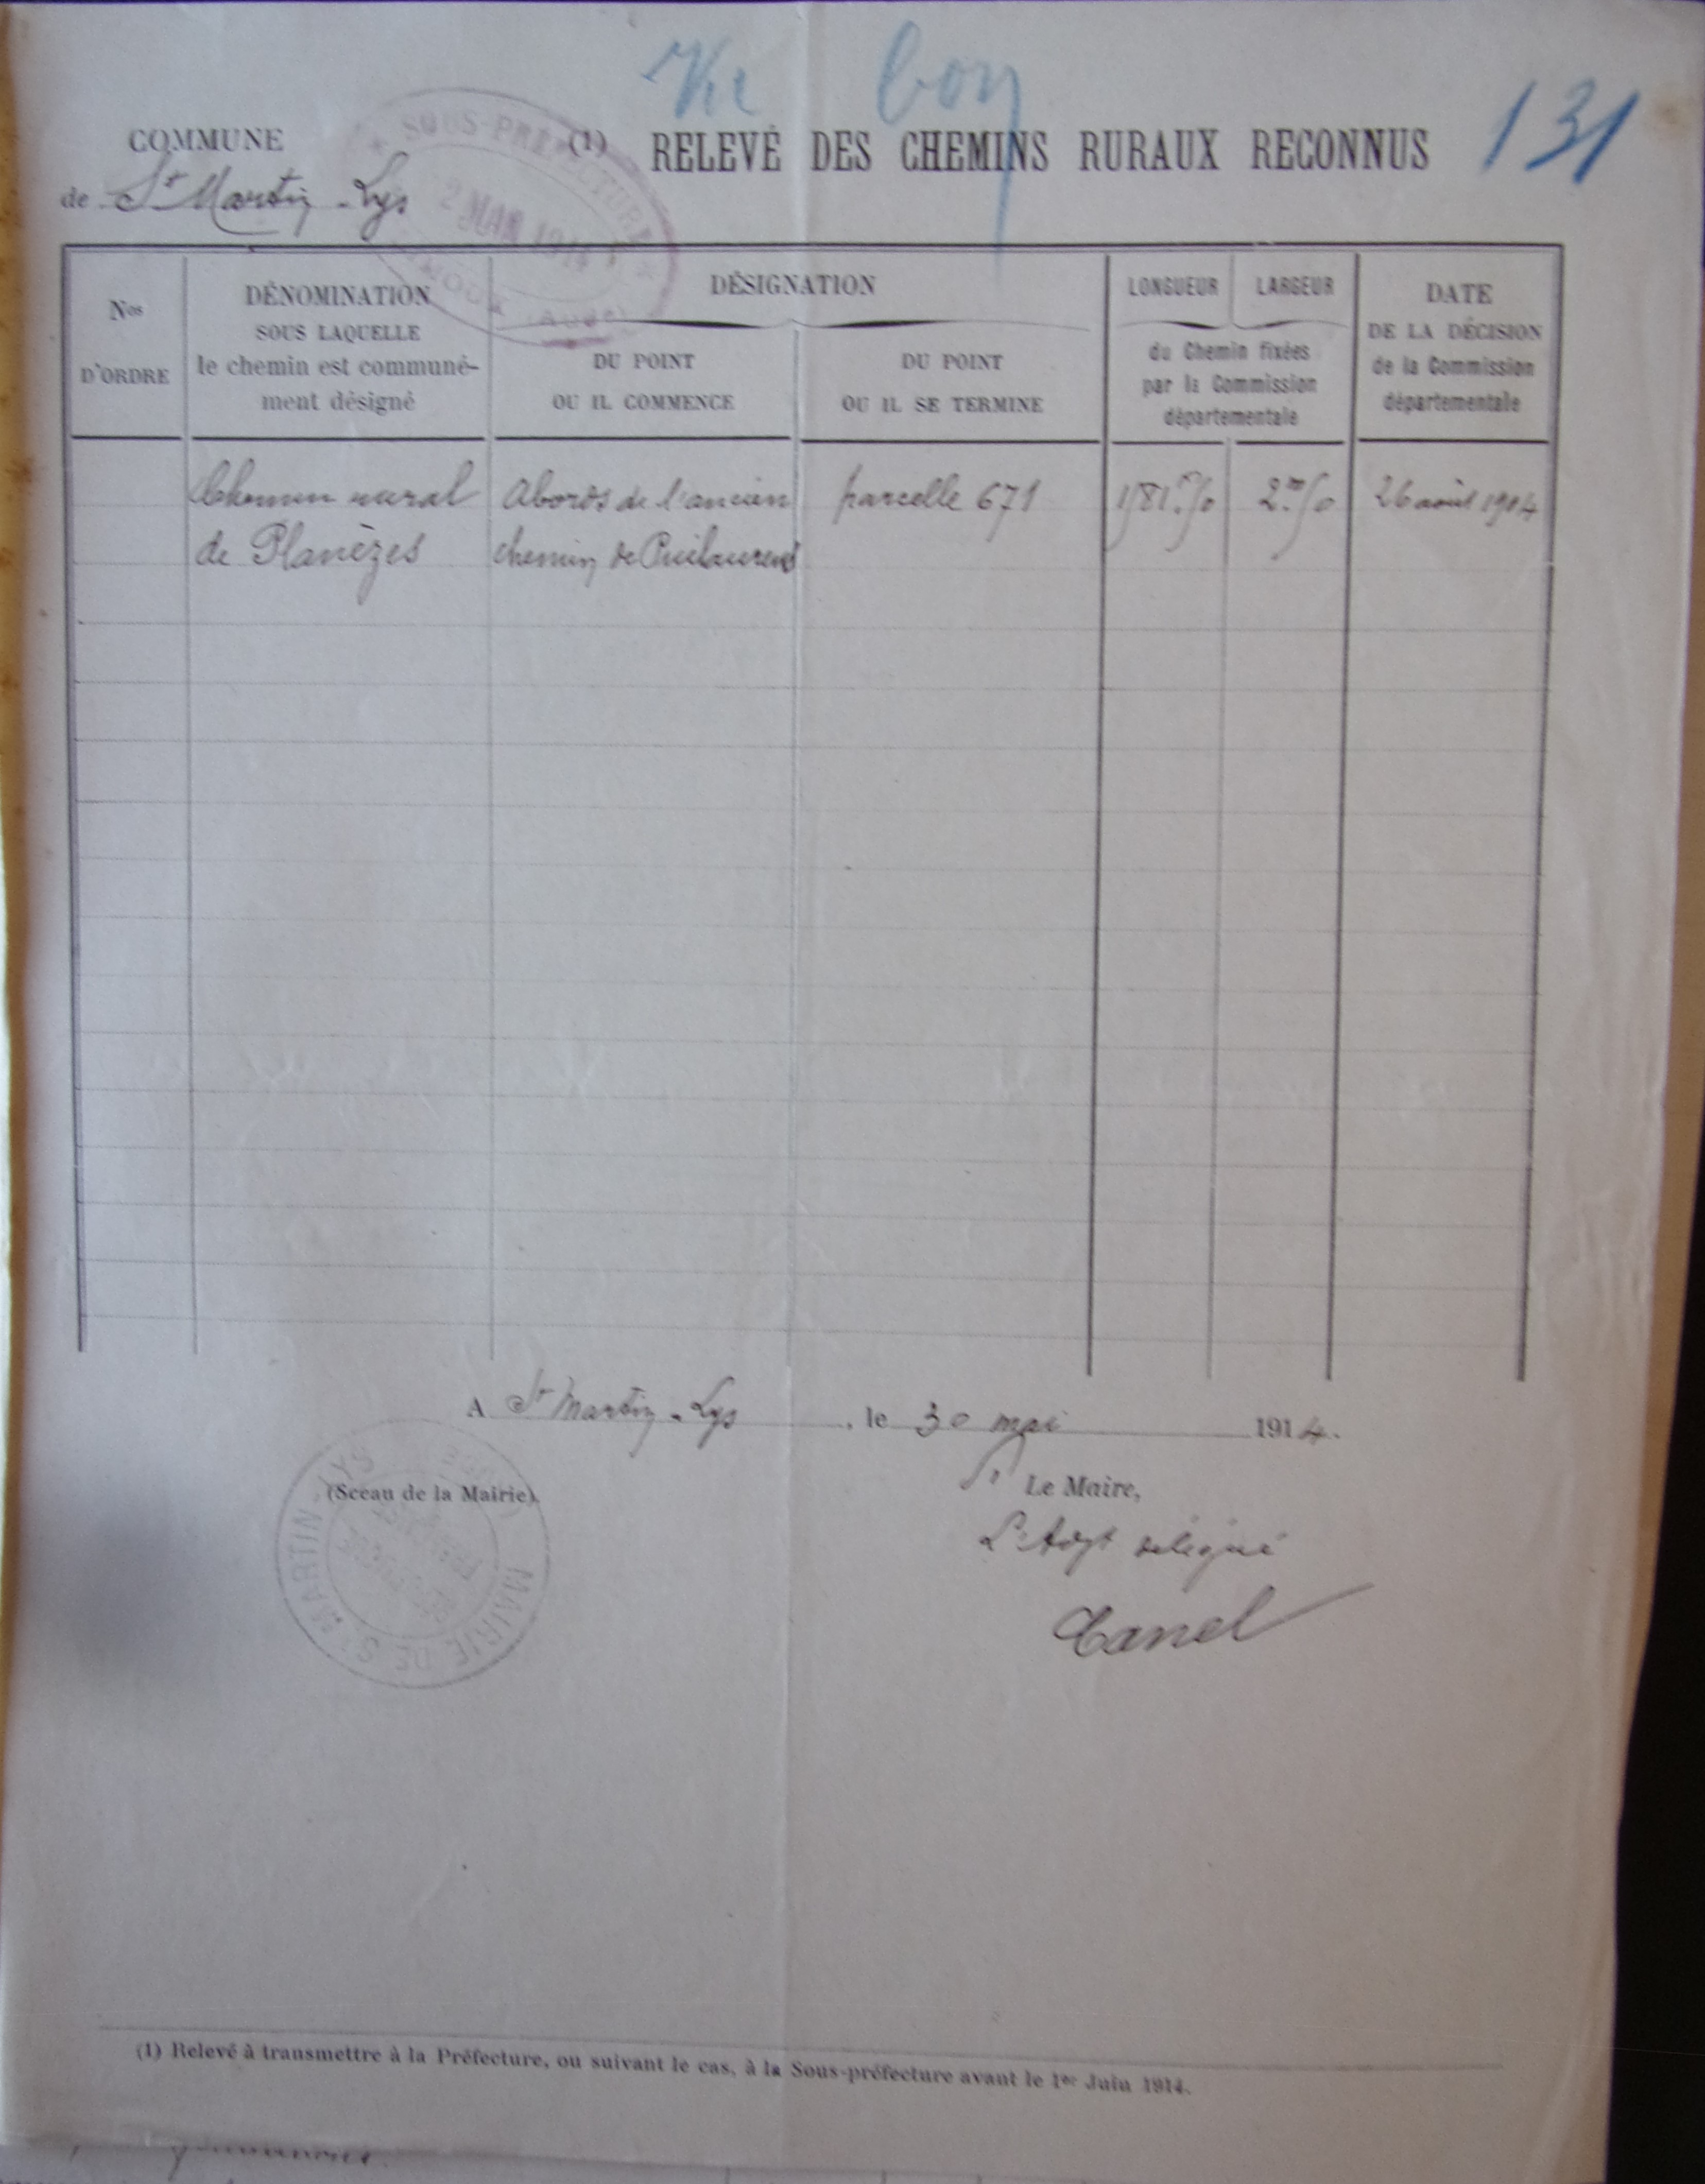 bon
131
COMMUNE
de St Martin-Lys
(1) RELEVÉ DES CHEMINS RURAUX RECONNUS
SOUS-PRÉFECTURE
2 1914
LIMOUX (AUDE)
Nos
D'ORDRE
DÉNOMINATION
SOUS LAQUELLE
le chemin est communé-
ment désigné
DÉSIGNATION
DU POINT
OU IL COMMENCE
DU POINT
OU IL SE TERMINE
LONGUEUR
LARGEUR
du Chemin fixées
par la Commission
départementale
DATE
DE LA DÉCISION
de la Commission
départementale
Chemin rural
de Planèzes
Abords de l'ancien
chemin de Puilaurens
parcelle 671
2.m/0
26 août 1904
A St Martin-Lys, le 30 mai 1914.
(Sceau de la Mairie).
MAIRIE DE St MARTIN-LYS
Pr Le Maire,
L'Adjt délégué
Canel
(1) Relevé à transmettre à la Préfecture, ou suivant le cas, à la Sous-préfecture avant le 1er Juin 1914.